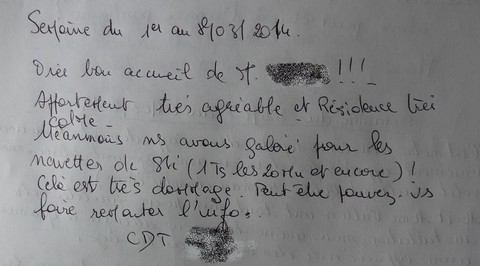 Semaine du 1er au 8/03/2014.
Très bon accueil de M. !!!
Appartement très agréable et Résidence très
calme.
Néanmoins ns avons galéré pour les
navettes de Ski (1 Ts les 20mn et encore)!
Celà est très dommage. Peut être pouvez-vs
faire remonter l'info.
CDT